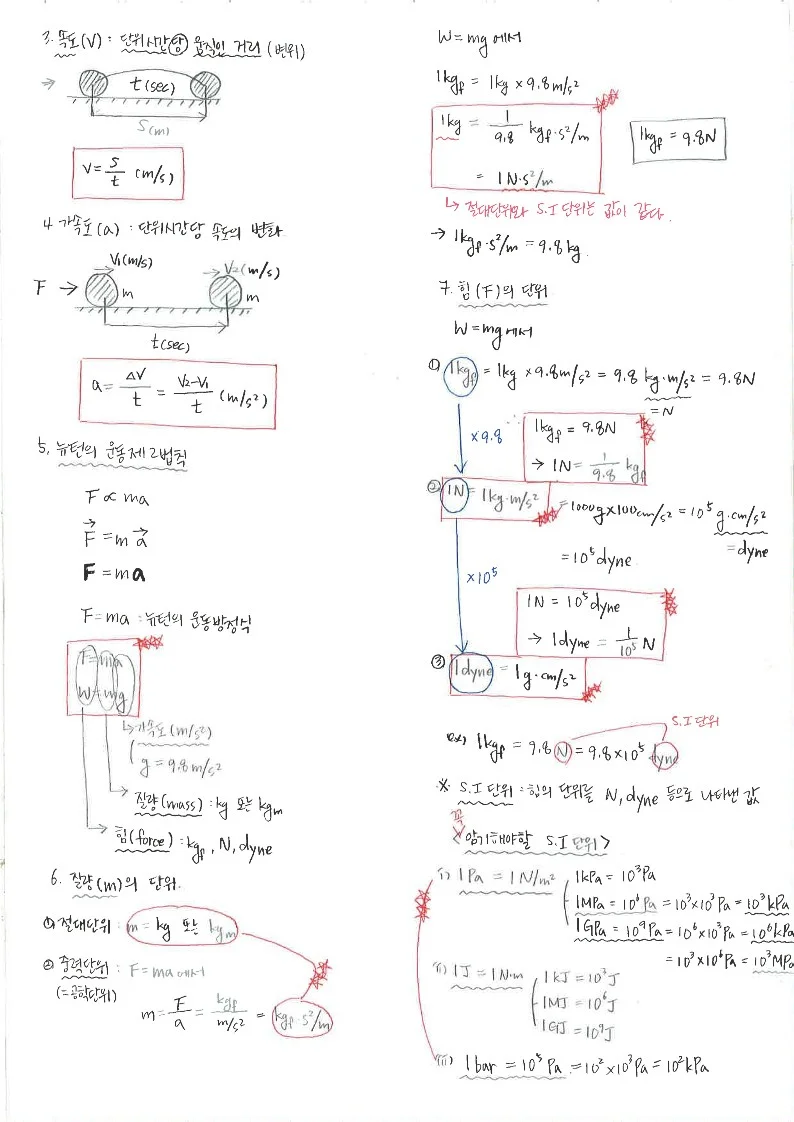 3. 속도(V) : 단위시간당 움직인 거리 (변위)
t(sec)
S(m)
V = S/t (m/s)
4. 가속도(a) : 단위시간당 속도의 변화
V₁(m/s)
V₂(m/s)
F → m m
t(sec)
a = ΔV/t = V₂-V₁/t (m/s²)
5. 뉴턴의 운동 제2법칙
F ∝ ma
F = m a
F = ma
F = ma : 뉴턴의 운동방정식
F = ma
W = mg
↳ 가속도(m/s²)
g = 9.8m/s²
질량(mass) : kg 또는 kgm
힘(force) : kgf, N, dyne
6. 질량(m)의 단위
① 절대단위 : m = kg 또는 kgm
② 중력단위 : F = ma에서
(=공학단위)
m = F/a = kgf/m/s² = kgf·s²/m
W = mg에서
1kgf = 1kg × 9.8m/s²
1kg = 1/9.8 kgf·s²/m
= 1N·s²/m
1kgf = 9.8N
↳ 절대단위와 S.I 단위는 값이 같다.
→ 1kgf·s²/m = 9.8kg.
7. 힘(F)의 단위
W = mg에서
① 1kgf = 1kg × 9.8m/s² = 9.8 kg·m/s² = 9.8N
= N
×9.8
∴ 1kgf = 9.8N
→ 1N = 1/9.8 kgf
② 1N = 1kg·m/s² = 1000g×100cm/s² = 10⁵ g·cm/s²
= dyne
= 10⁵dyne
×10⁵
1N = 10⁵dyne
→ 1dyne = 1/10⁵ N
③ 1dyne = 1g·cm/s²
S.I 단위
ex) 1kgf = 9.8 N = 9.8×10⁵ dyne
※ S.I 단위 : 힘의 단위를 N, dyne 등으로 나타낸 값
꼭
<암기해야할 S.I 단위>
i) 1Pa = 1N/m²
1kPa = 10³Pa
1MPa = 10⁶Pa = 10³×10³Pa = 10³kPa
1GPa = 10⁹Pa = 10⁶×10³Pa = 10⁶kPa
= 10³×10⁶Pa = 10³MPa
ii) 1J = 1N·m
1kJ = 10³J
1MJ = 10⁶J
1GJ = 10⁹J
iii) 1bar = 10⁵Pa = 10²×10³Pa = 10²kPa